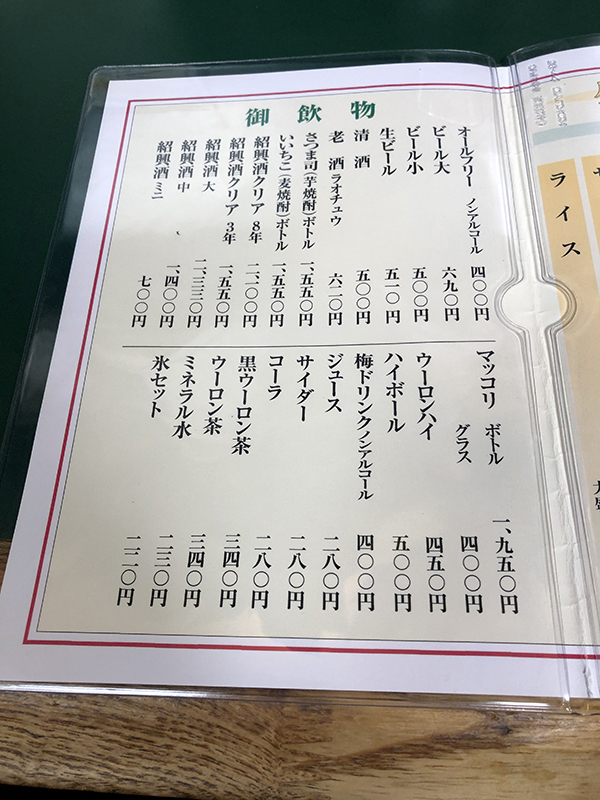 御飲物
オールフリー ノンアルコール 四〇〇円
ビール大 六九〇円
ビール小 五〇〇円
生ビール 五一〇円
清酒 五〇〇円
老酒 ラオチュウ 六二〇円
さつま司(芋焼酎)ボトル 一、五五〇円
いいちこ(麦焼酎)ボトル 一、五五〇円
紹興酒クリア 8年 二、二〇〇円
紹興酒クリア 3年 一、五五〇円
紹興酒 大 二、三三〇円
紹興酒 中 一、四〇〇円
紹興酒ミニ 七〇〇円
マッコリ ボトル 一、九五〇円
グラス 四〇〇円
ウーロンハイ 四五〇円
ハイボール 五〇〇円
梅ドリンクノンアルコール 四〇〇円
ジュース 二八〇円
サイダー 二八〇円
コーラ 二八〇円
黒ウーロン茶 三四〇円
ウーロン茶 三四〇円
ミネラル水 二三〇円
氷セット 一二〇円
ライス